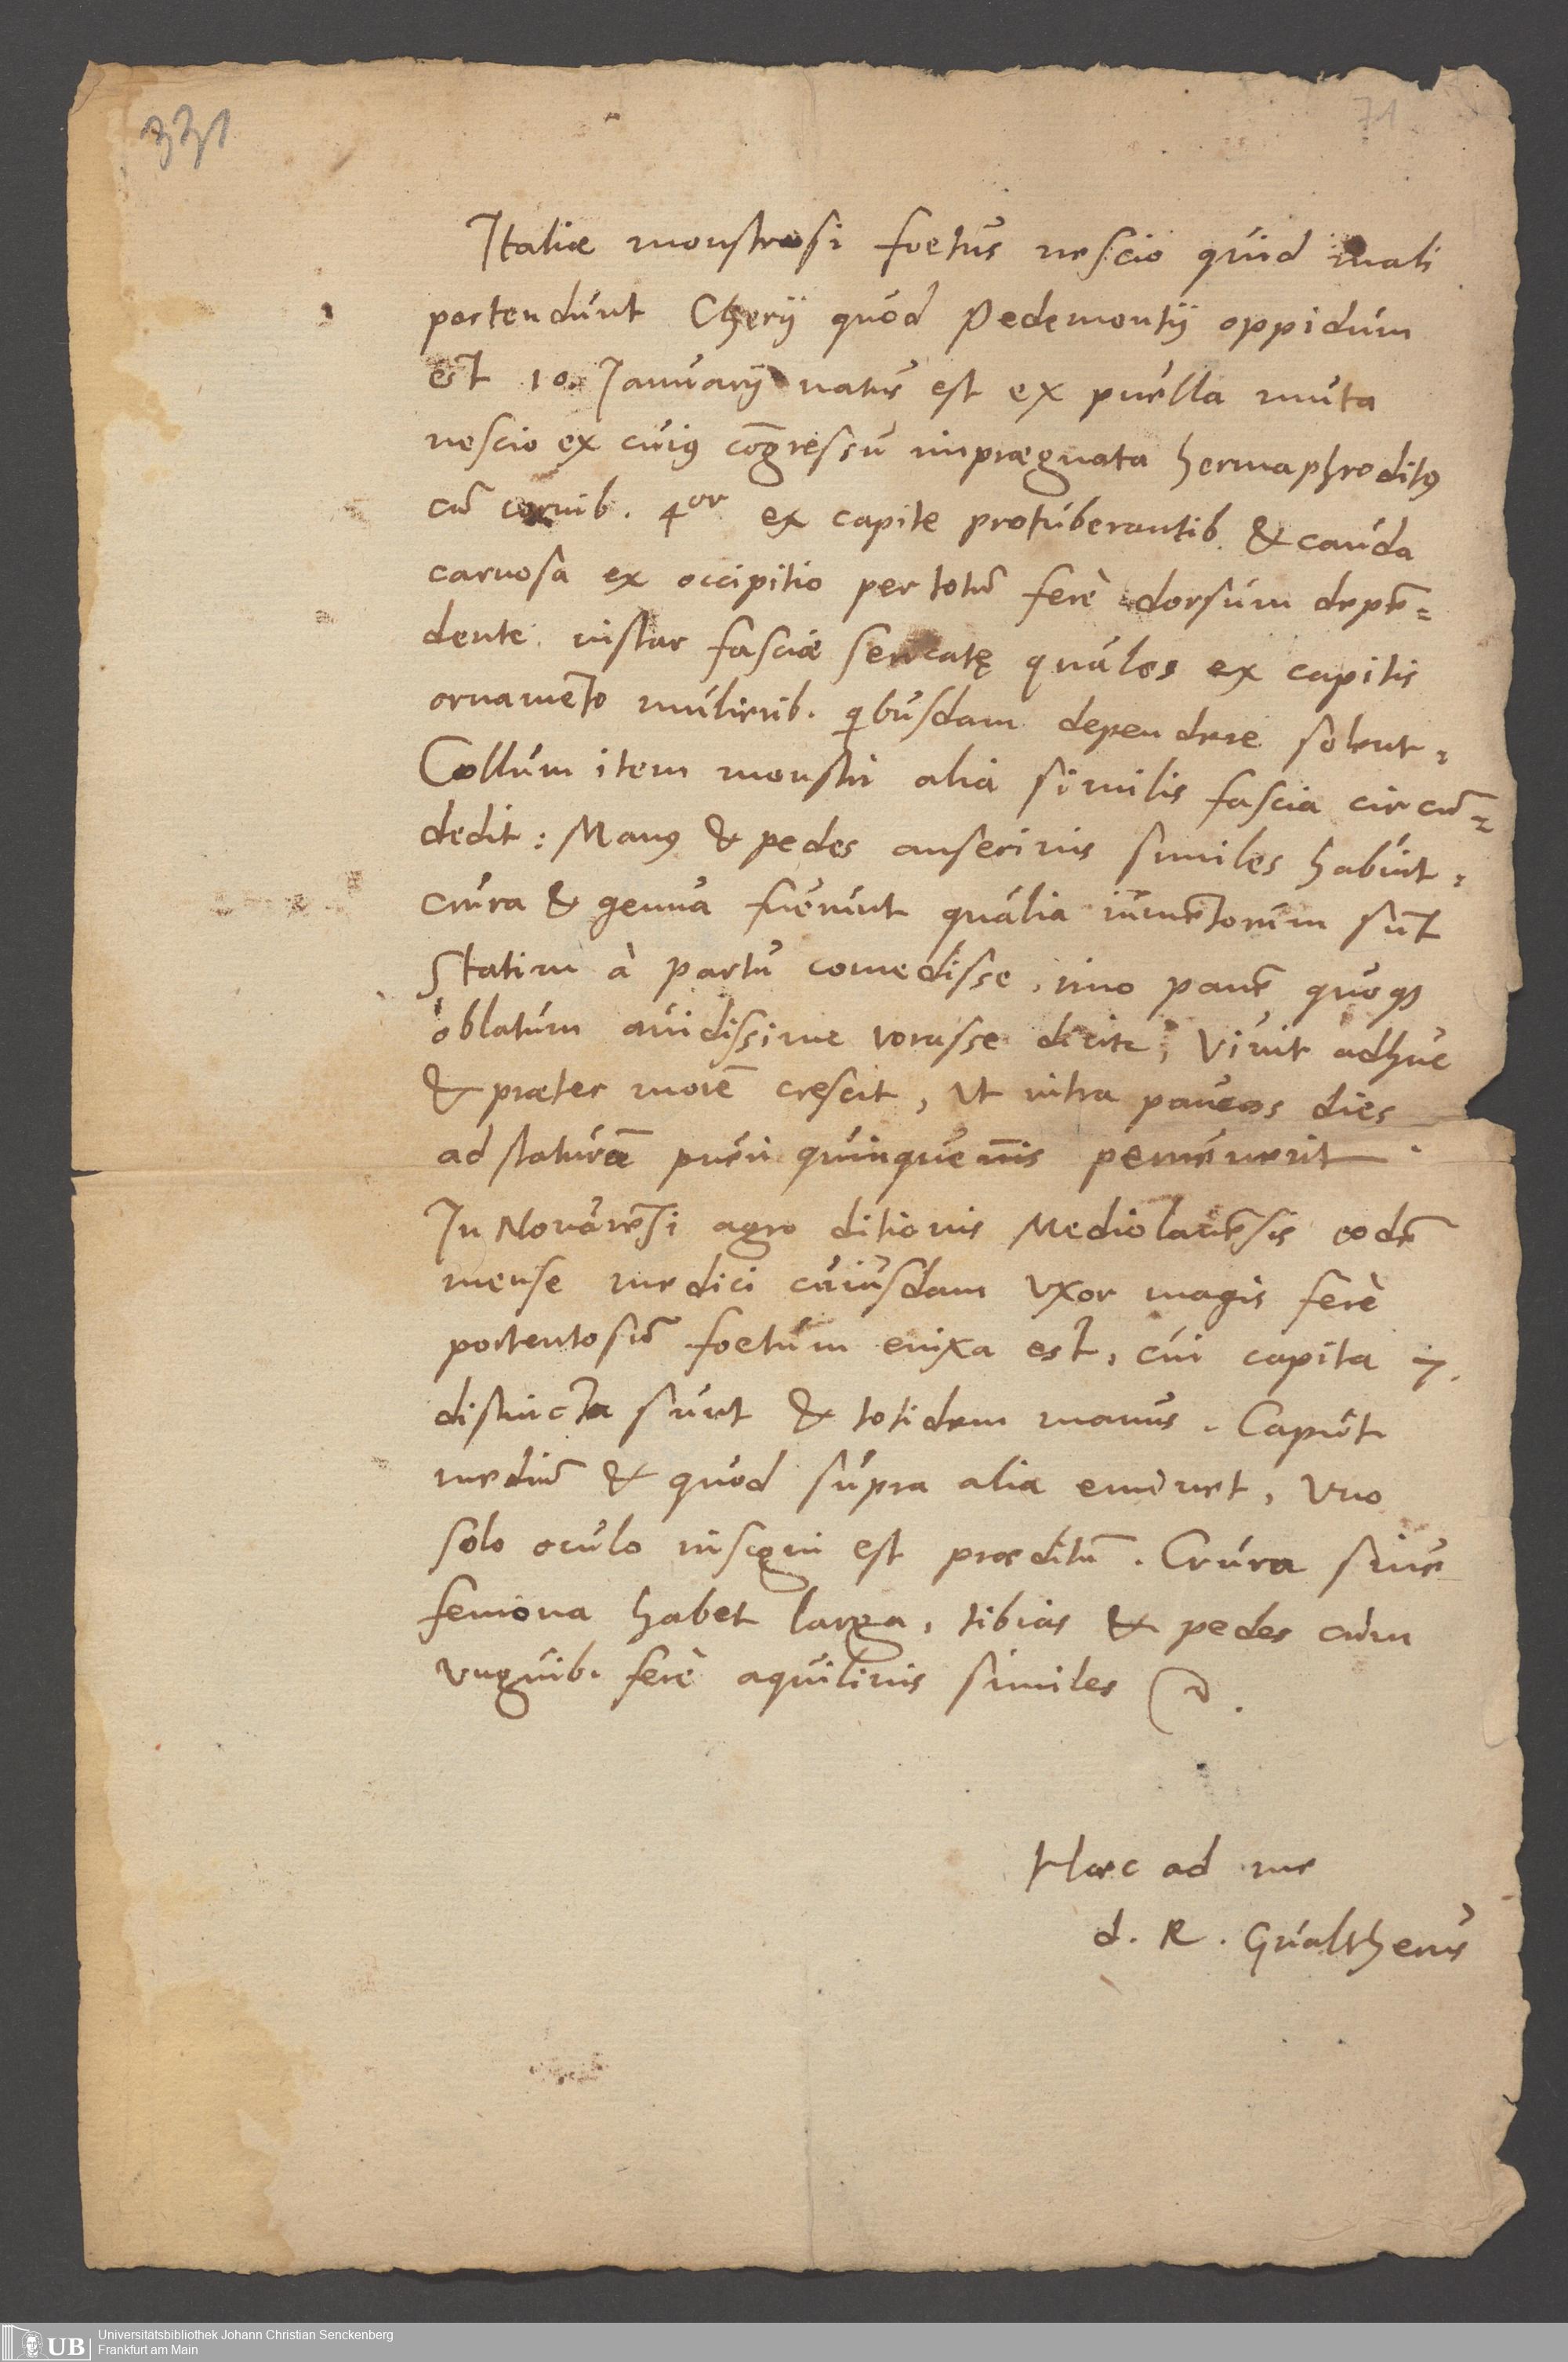 331
71
Italiæ monstrosi foetus nescio quid mali
portendunt Cherij quod Pedemontij oppidum
est 10. Januarij natus est ex puella muta
nescio ex cuiꝰ co͞gressu impraegnata hermaphroditꝰ
cu͞ cornib. 4or ex capite protuberantib. & cauda
carnosa ex occipitio per totu͞ ferè dorsum depe͞=
dente instar fasciæ sericatę quales ex capitis
orname͞to mulierib. qbusdam dependere solent,
Collum item monstri alia similis fascia circu͞=
dedit: Manꝰ & pedes anserinis similes habuit,
crura & genua fuerunt qualia iume͞torum su͞t
Statim à partu comedisse, imo pane͞ quoqꝫ
oblatum auidissime vorasse dicitr, Viuit adhuc
& præter more͞ crescit, Vt intra paucos dies
ad statura͞ pueri quinquennis peruenerit.
In Novare͞si agro ditionis Mediolane͞sis eode͞
mense medici cuiusdam Vxor magis ferè
portentosu͞ foetum enixa est, cui capita 7.
distincta sunt & totidem manus. Caput
mediu͞ & quod supra alia eminet, Vno
solo oculo insigni est præditu͞. Crura siue
femora habet larga, tibias & pedes cum
Vnguib. ferè aquilinis similes
Haec ad me
d. R. Gualtherus
UB
Universitätsbibliothek Johann Christian Senckenberg
Frankfurt am Main